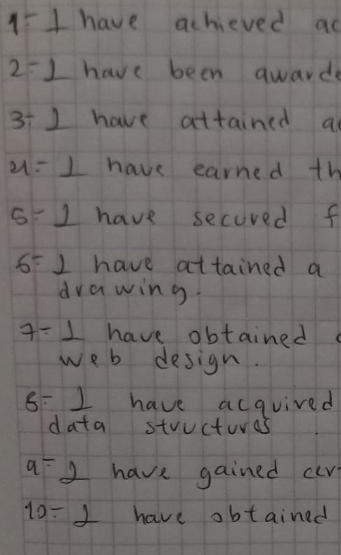 1- I have achieved ac
2- I have been awarde
3- I have attained a
4- I have earned th
5- I have secured f
6- I have attained a
drawing.
7- I have obtained
web design.
8- I have acquired
data structures
9- I have gained cer
10- I have obtained